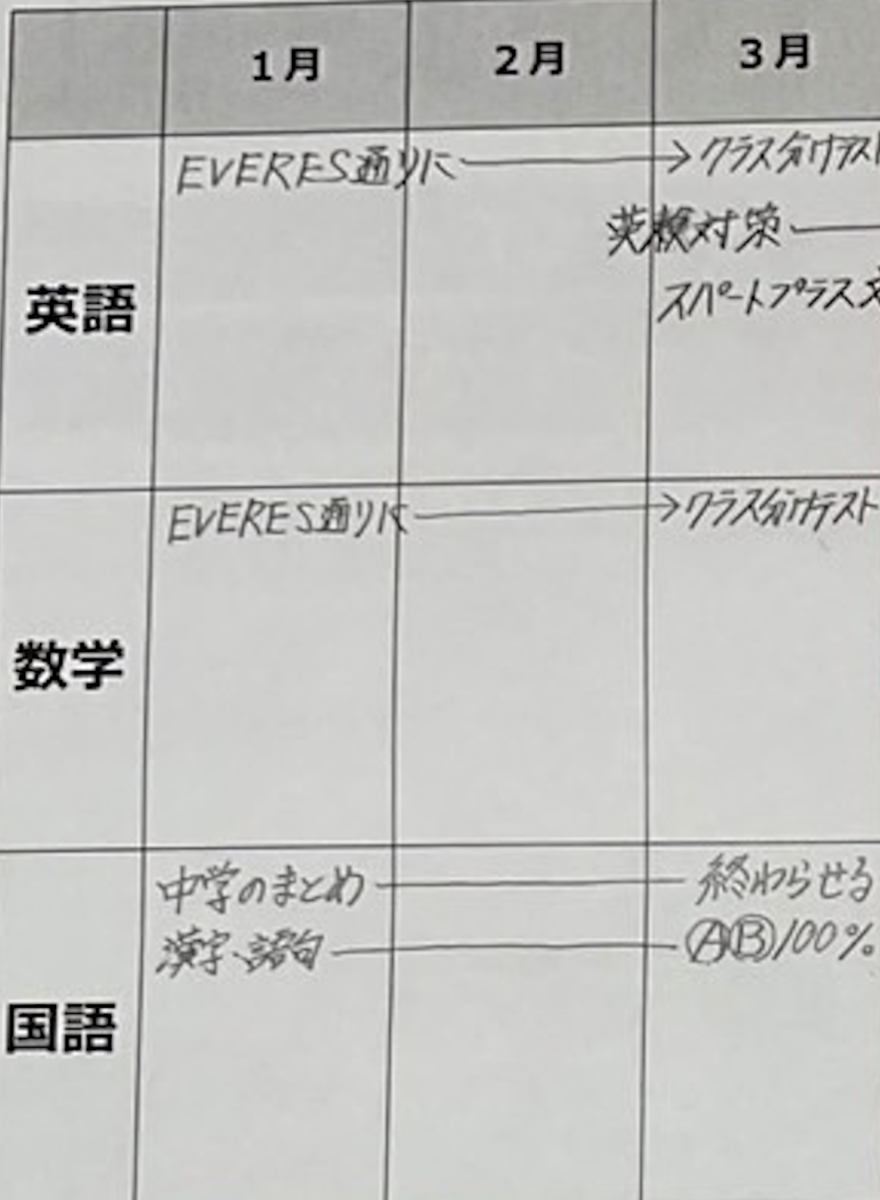 1月 2月 3月
英語
EVERES通りに → クラス分けテスト
英検対策
スパートプラス
数学
EVERES通りに → クラス分けテスト
国語
中学のまとめ 終わらせる
漢字、語句 ⒶⒷ100%